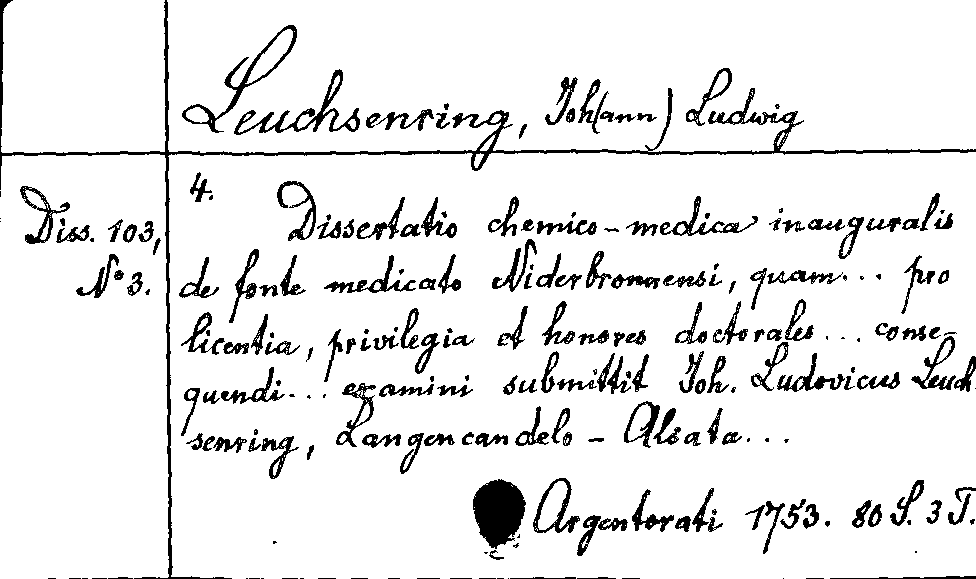 Leuchsenring, Joh(ann) Ludwig
Diss. 103,
No 3.
4. Dissertatio chemico-medica inauguralis
de fonte medicato Niderbronnensi, quam... pro
licentia, privilegia et honores doctorales... conse-
quendi... examini submittit Joh. Ludovicus Leuch
senring, Langencandelo - Alsata...
Argentorati 1753. 80 S. 3 T.